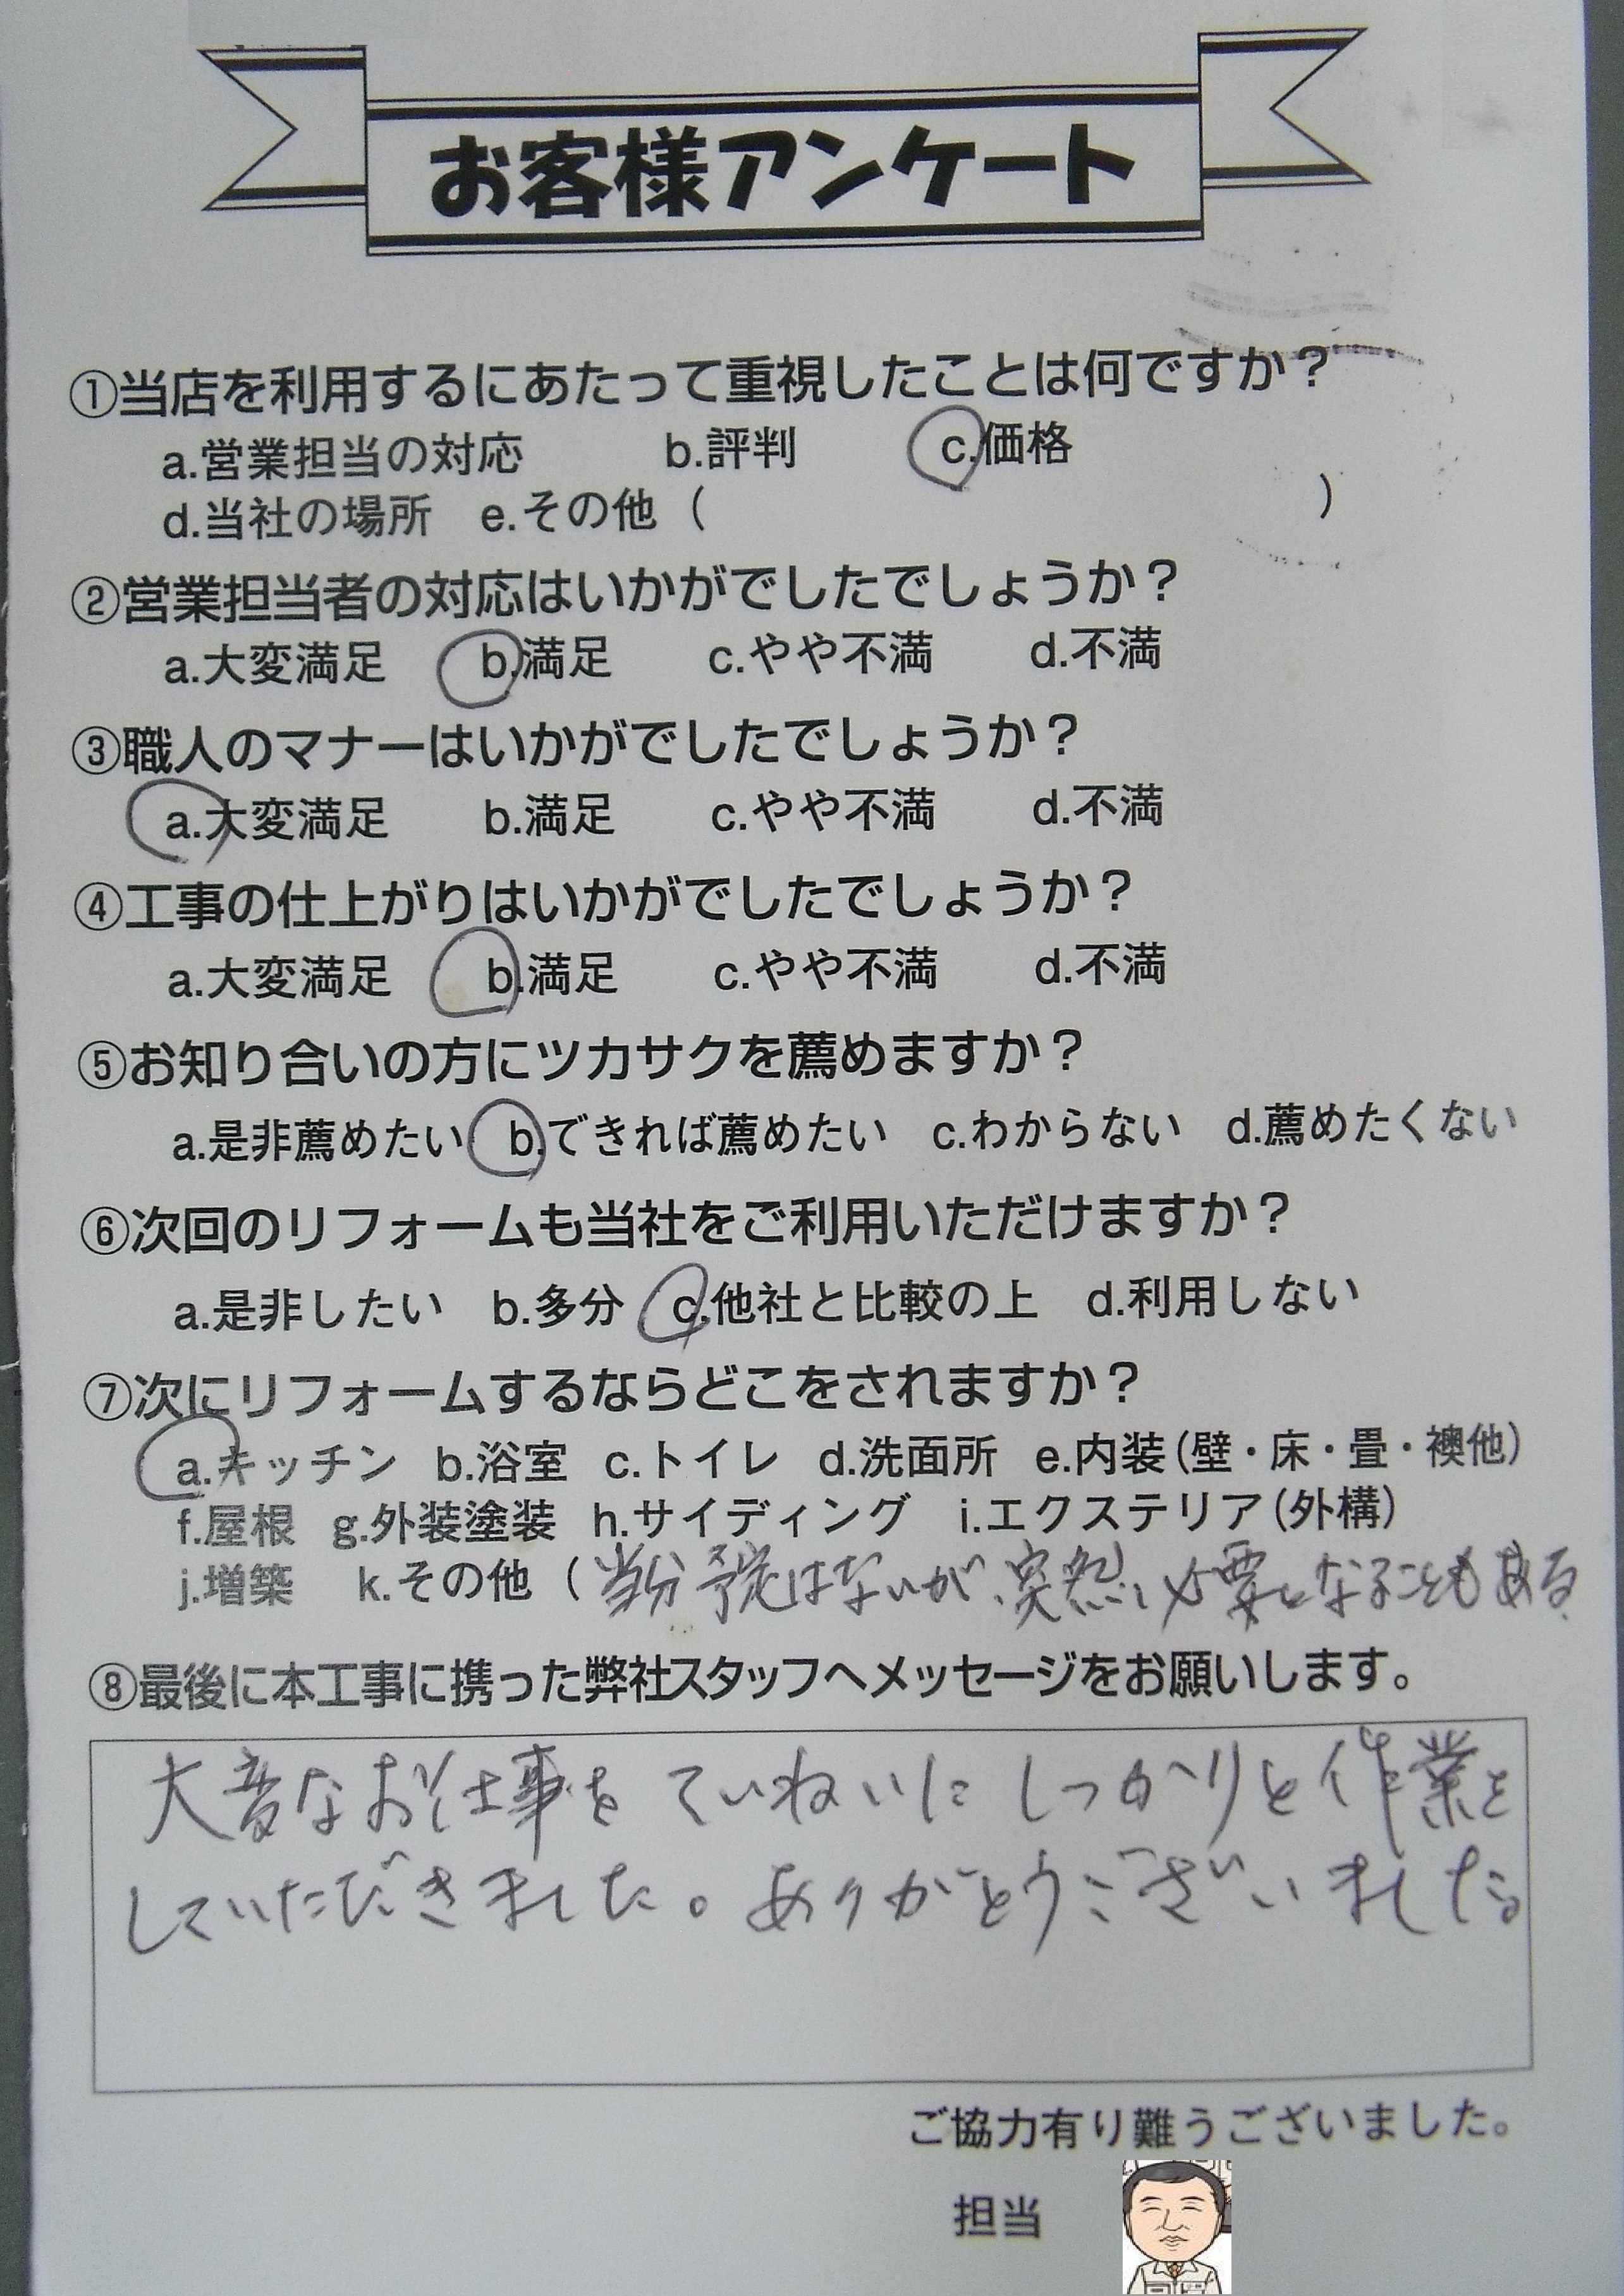 お客様アンケート
①当店を利用するにあたって重視したことは何ですか？
a.営業担当の対応 b.評判 c.価格
d.当社の場所 e.その他（ ）
②営業担当者の対応はいかがでしたでしょうか？
a.大変満足 b.満足 c.やや不満 d.不満
③職人のマナーはいかがでしたでしょうか？
a.大変満足 b.満足 c.やや不満 d.不満
④工事の仕上がりはいかがでしたでしょうか？
a.大変満足 b.満足 c.やや不満 d.不満
⑤お知り合いの方にツカサクを薦めますか？
a.是非薦めたい b.できれば薦めたい c.わからない d.薦めたくない
⑥次回のリフォームも当社をご利用いただけますか？
a.是非したい b.多分 c.他社と比較の上 d.利用しない
⑦次にリフォームするならどこをされますか？
a.キッチン b.浴室 c.トイレ d.洗面所 e.内装(壁・床・畳・襖他)
f.屋根 g.外装塗装 h.サイディング i.エクステリア(外構)
j.増築 k.その他（当分予定はないが、突然、必要となることもある。
⑧最後に本工事に携った弊社スタッフへメッセージをお願いします。
大変なお仕事を ていねいに しっかりと作業を
していただきました。ありがとうございました。
ご協力有り難うございました。
担当